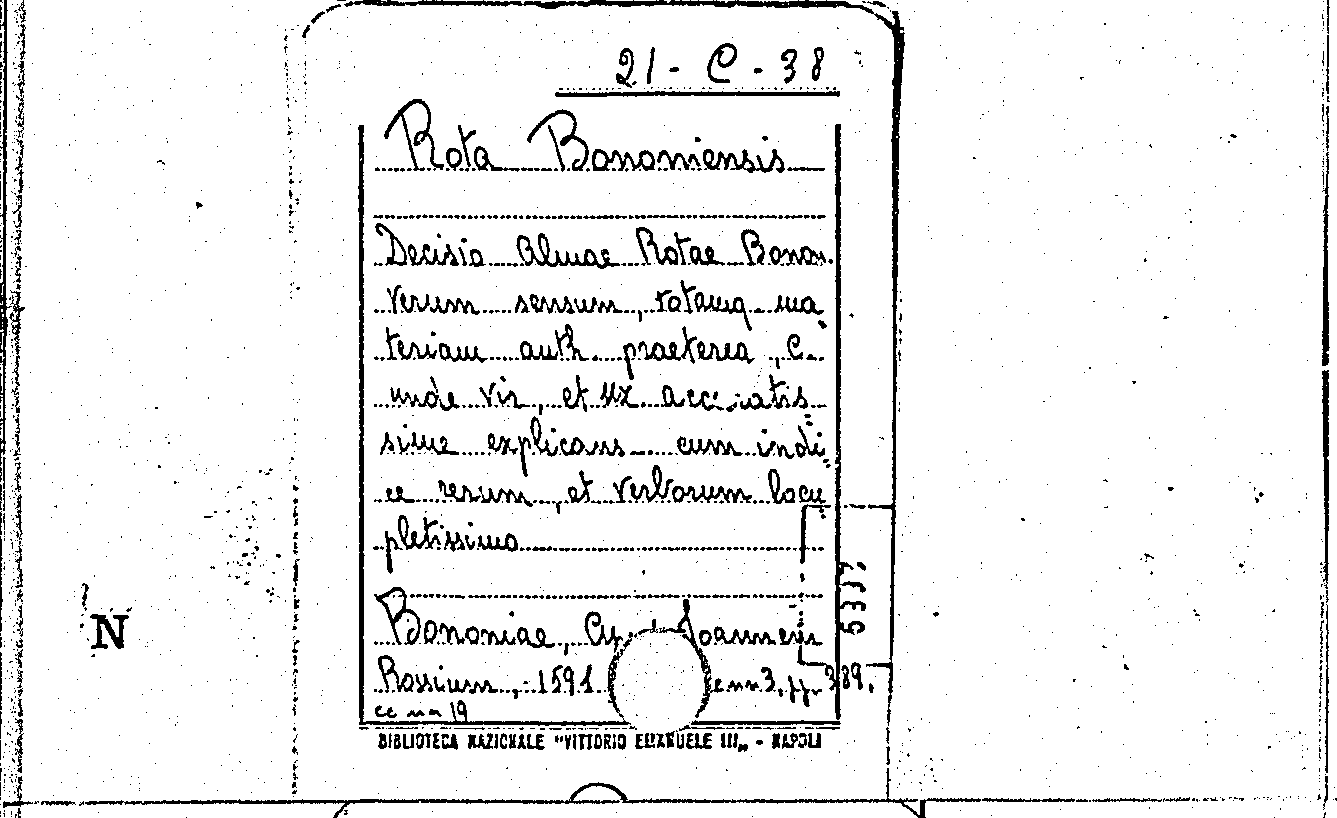 21-C-38
Rota Bononiensis
Decisio Almae Rotae Bonon.
verum sensum, totamq. ma
teriam auth. praeterea, C.
unde vir, et ux. accuratis
sime explicans cum indi
ce rerum, et verborum locu
pletissimo
5337
N
Bononiae, Joannem
Rossium, 1591 cc nn 3, pp. 389,
cc nn 19
BIBLIOTECA NAZIONALE "VITTORIO EMANUELE III„ - NAPOLI